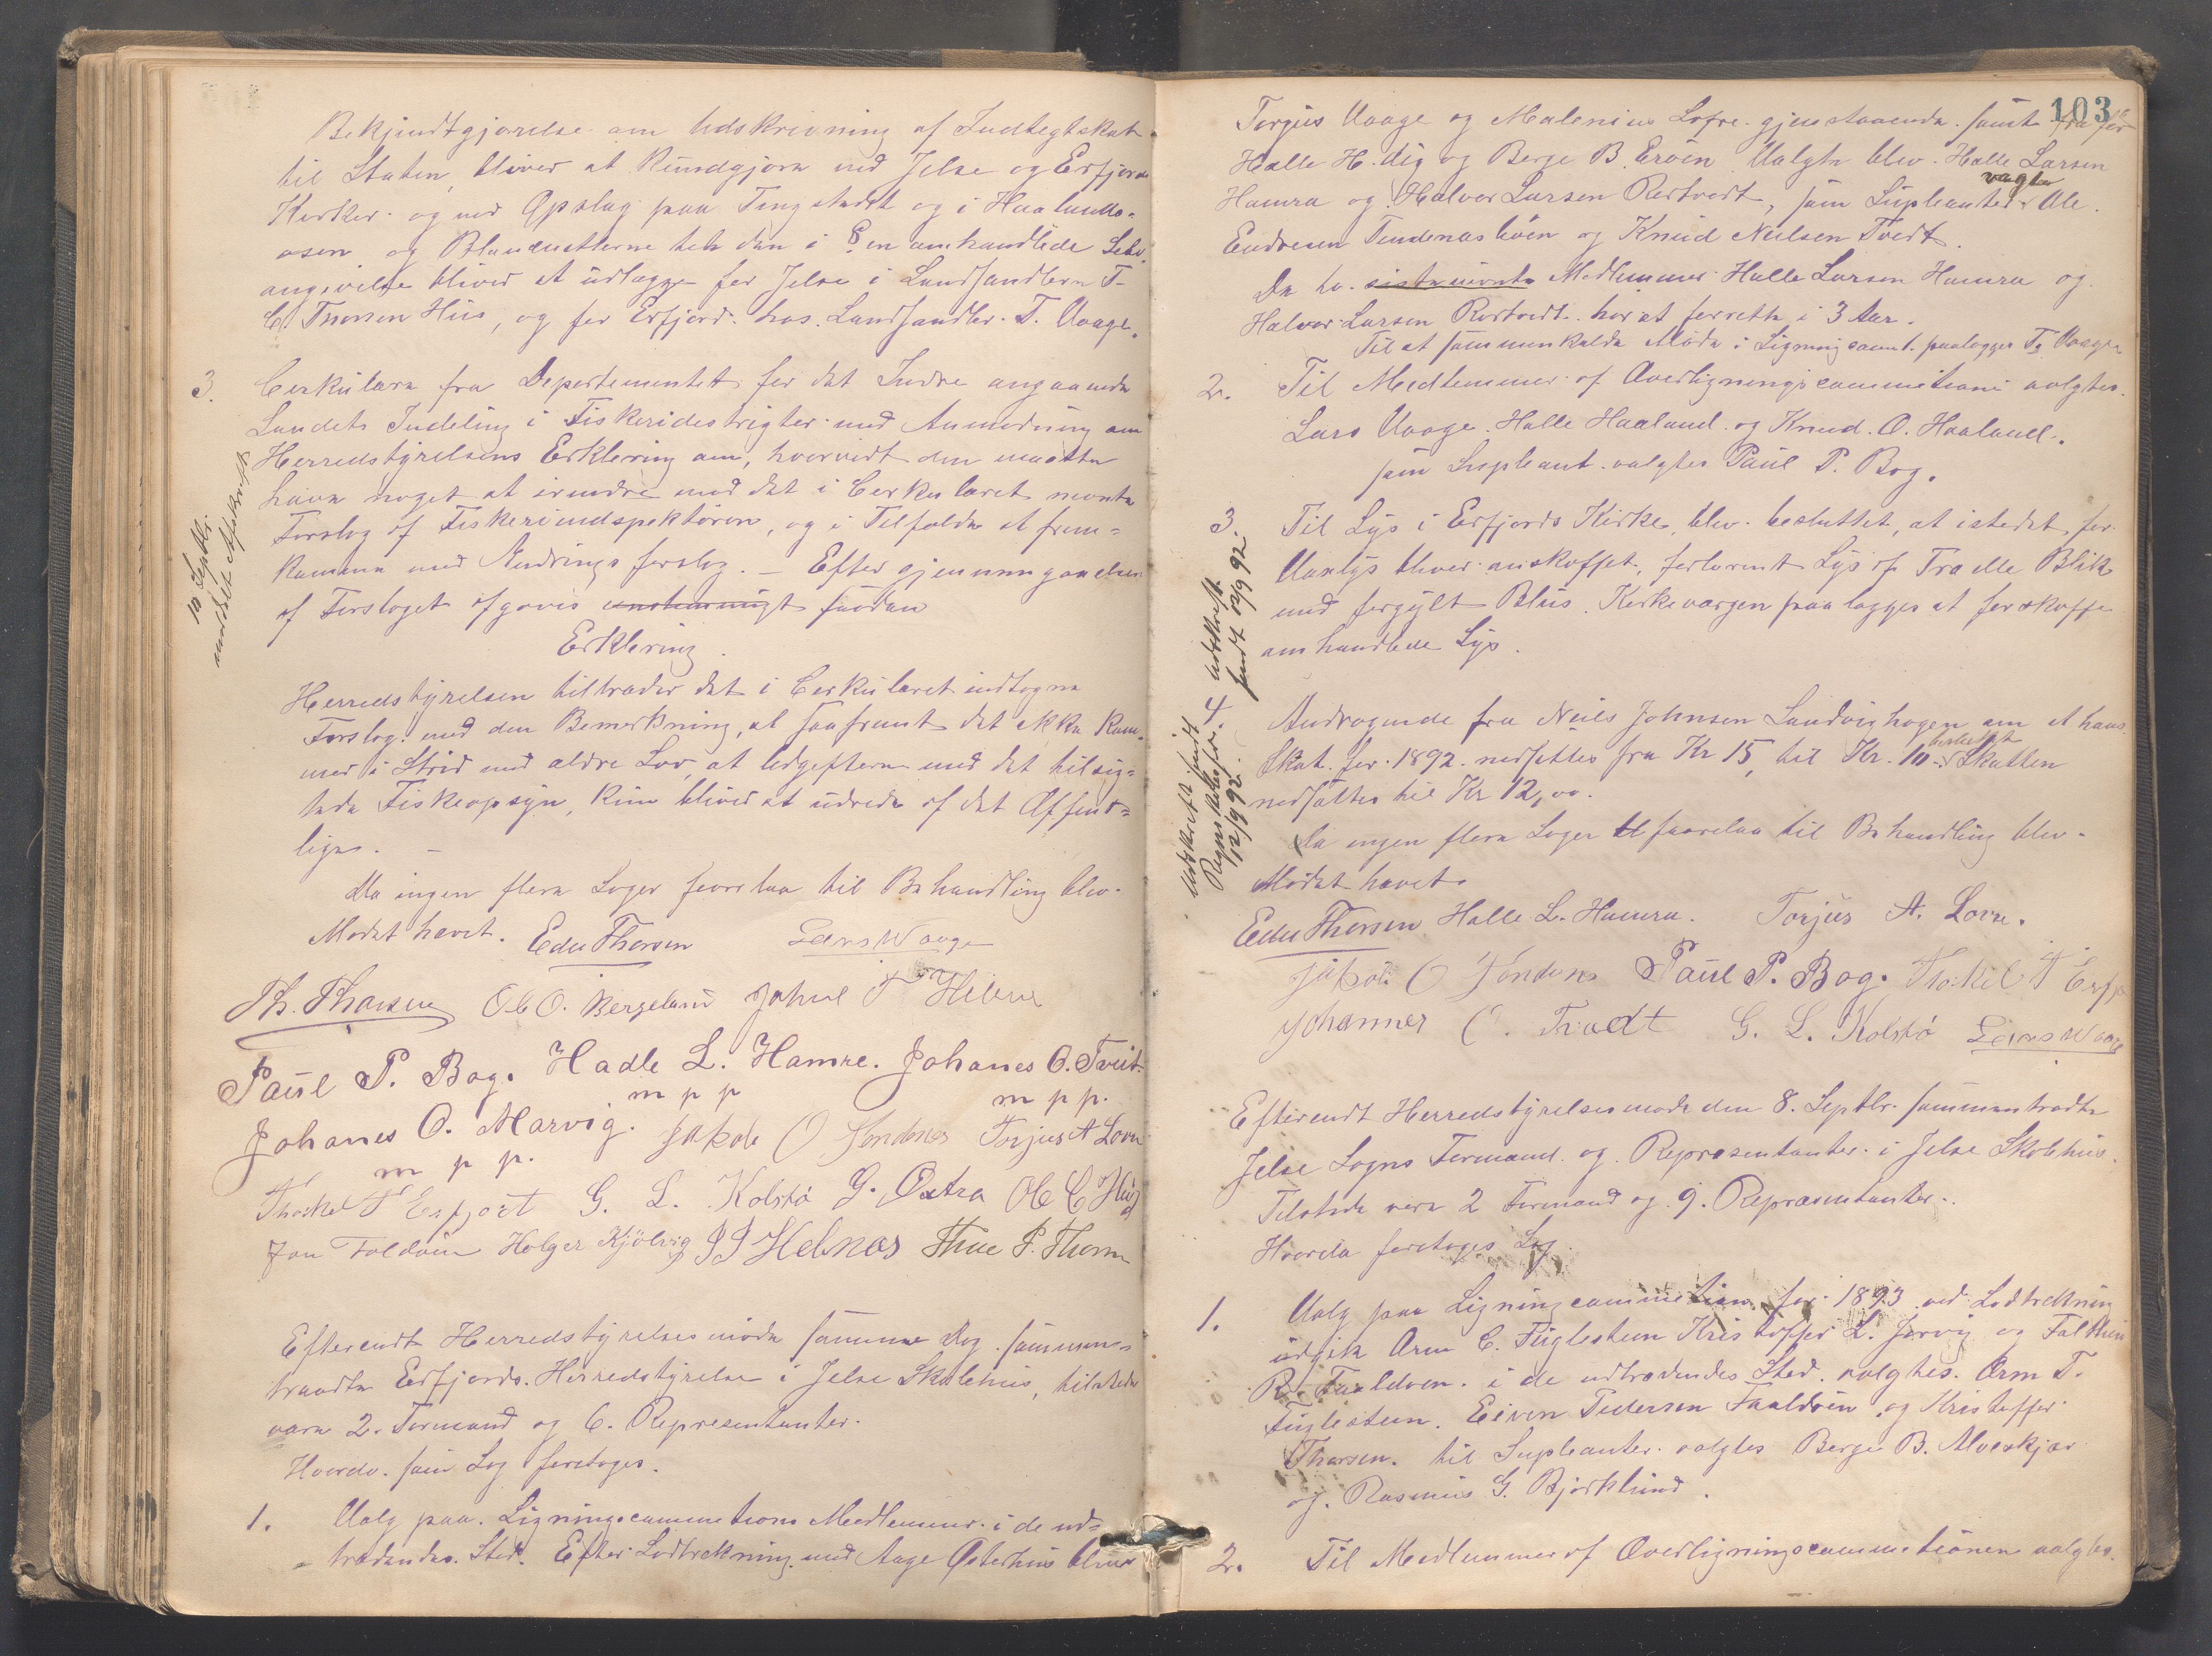 Bekjendtgjørelse om Udskrivning af Indtegtskat
til Staten, bliver at kundgjøra ved Jelse og Erfjords
Kirker og ved Opslag paa Tingstedet og i Haalands-
osen og Blanquetterne teh den i § en omhandlede Selv-
angivelse bliver at udlægge for Jelse i Landhandler T-
C. Thorsen Hus, og for Erfjord hos Landhandler T. Vaage.
3. Cerkulære fra Departementet for det Indre angaaende
Landets Indeling i Fiskeridestrigter med Anmodning om
Herredstyrelsens Erklering om, hvorvidt den maatte
have noget at erindre mod det i Cerkulæret nevnte
Forslag af Fiskeriindspektøren, og i Tilfælde at frem-
komme med Andrings forslag. — Efter gjennemgaaelsen
af Forslaget afgaves enstemmigt saadan
Erklering.
10 Septbr.
meddelt Afskrift
Herredstyrelsen tiltræder det i Cerkulæret indtagne
Forslag med den Bemerkning, at saafremt det ikke kom-
mer i Strid med ældre Lov, at Udgifterne med det tilsig-
tede Fiskeopsyn, kun bliver at udrede af det Offent-
lige. —
Da ingen flere Sager forelaa til Behandling blev
Mødet hævet. Edu Thorsen Lars Waage
Th. Thorsen Ole O. Bergeland Johne T Helene
Paul P. Bog. Hadle L. Hamre. Johanes O. Tveit
m p p m p p.
Johanes O. Marvig. Jakob O Sondenes Torjus A Lovra
m p p.
Thorkel T Erfjort G. L. Kolstø G. Østra Ole C Hug
Jon Foldøen Holger Kjölvig J J Helnæs Thue P. Thorsen
Efterendt Herredstyrelses møde samme Dag sammen-
traadte Erfjords Herredstyrelse i Jelse Skolehus, tilstede
vare 2 Formænd og 6. Representanter.
Hvorda som Sag foretoges.
1. Valg paa Ligningscommetions Medlemmer i de ud-
trædendes Sted. Efter Lodtrekning med Aage Østerhus bliver
103
Torjus Vaage og Malenius Lofre gjenstaaende samt
Halle H. Vig og Berge B. Erøen Valgte blev Halle Larsen
Hamra og Halvor Larsen Rortvedt, som Supleanter valgte Ole
Endresen Tendenæsløen og Knud Neilsen Tvedt.
De to siste nevnte Medlemmer Halle Larsen Hamra og
Halvor Larsen Rortvedt har at forrette i 3 Aar.
Til at sammenkalde Møde i Ligningscomt. paalægges Tj. Vaage
2. Til Medlemmer af Overligningscommetionen valgtes
Lars Vaage. Halle Haaland og Knud. O. Haaland.
som Supleant valgtes Paul P. Bog.
3. Til Lys i Erfjords Kirke, blev besluttet, at istedet for
Vaxlys bliver anskaffet, forlorent Lys af Træ elle Blik
med forgylt Blus. Kirkeværgen paalægges at forskaffe
omhandlede Lys.
Udskrift
sendt 12/9 92.
4. Andragende fra Neils Johnsen Sandvighagen om at hans
Skat for 1892 nedsettes fra Kr 15, til Kr. 10 besluttet Skatten
nedsattes til Kr 12,00.
Udskrift sendt
Regnskabsfør.
12/9 92.
Da ingen flere Sager forelaa til Behandling blev
Mødet hævet.
Edu Thorsen Halle L. Hamra. Torjus A. Lovra.
Jakob O Sondenes Paul P. Bog. Thorkel T Erfjo
Johannes O. Tvedt G. L. Kolstø Lars Waage
Efterendt Herredstyrelsesmøde den 8. Septbr. sammentradte
Jelse Sogns Formænd og Representanter i Jelse Skolehus.
Tilstede vare 2 Formænd og 9. Representanter.
Hvorda foretoges Sag.
1. Valg paa Ligningcommetion for 1893 ved Lodtrekning
udgik Orm C. Fuglesteen Kristoffer L. Jørvig og
R. Faaldøen. i de udtrædendes Sted. valgtes. Orm T.
Fuglesteen. Eiven Pedersen Faaldøen og Kristoffer
Thorsen. til Supleanter valgtes Berge B. Alveskjær
og Rasmus G. Bjørklund.
2. Til Medlemmer af Overligningscommetionen valgtes.